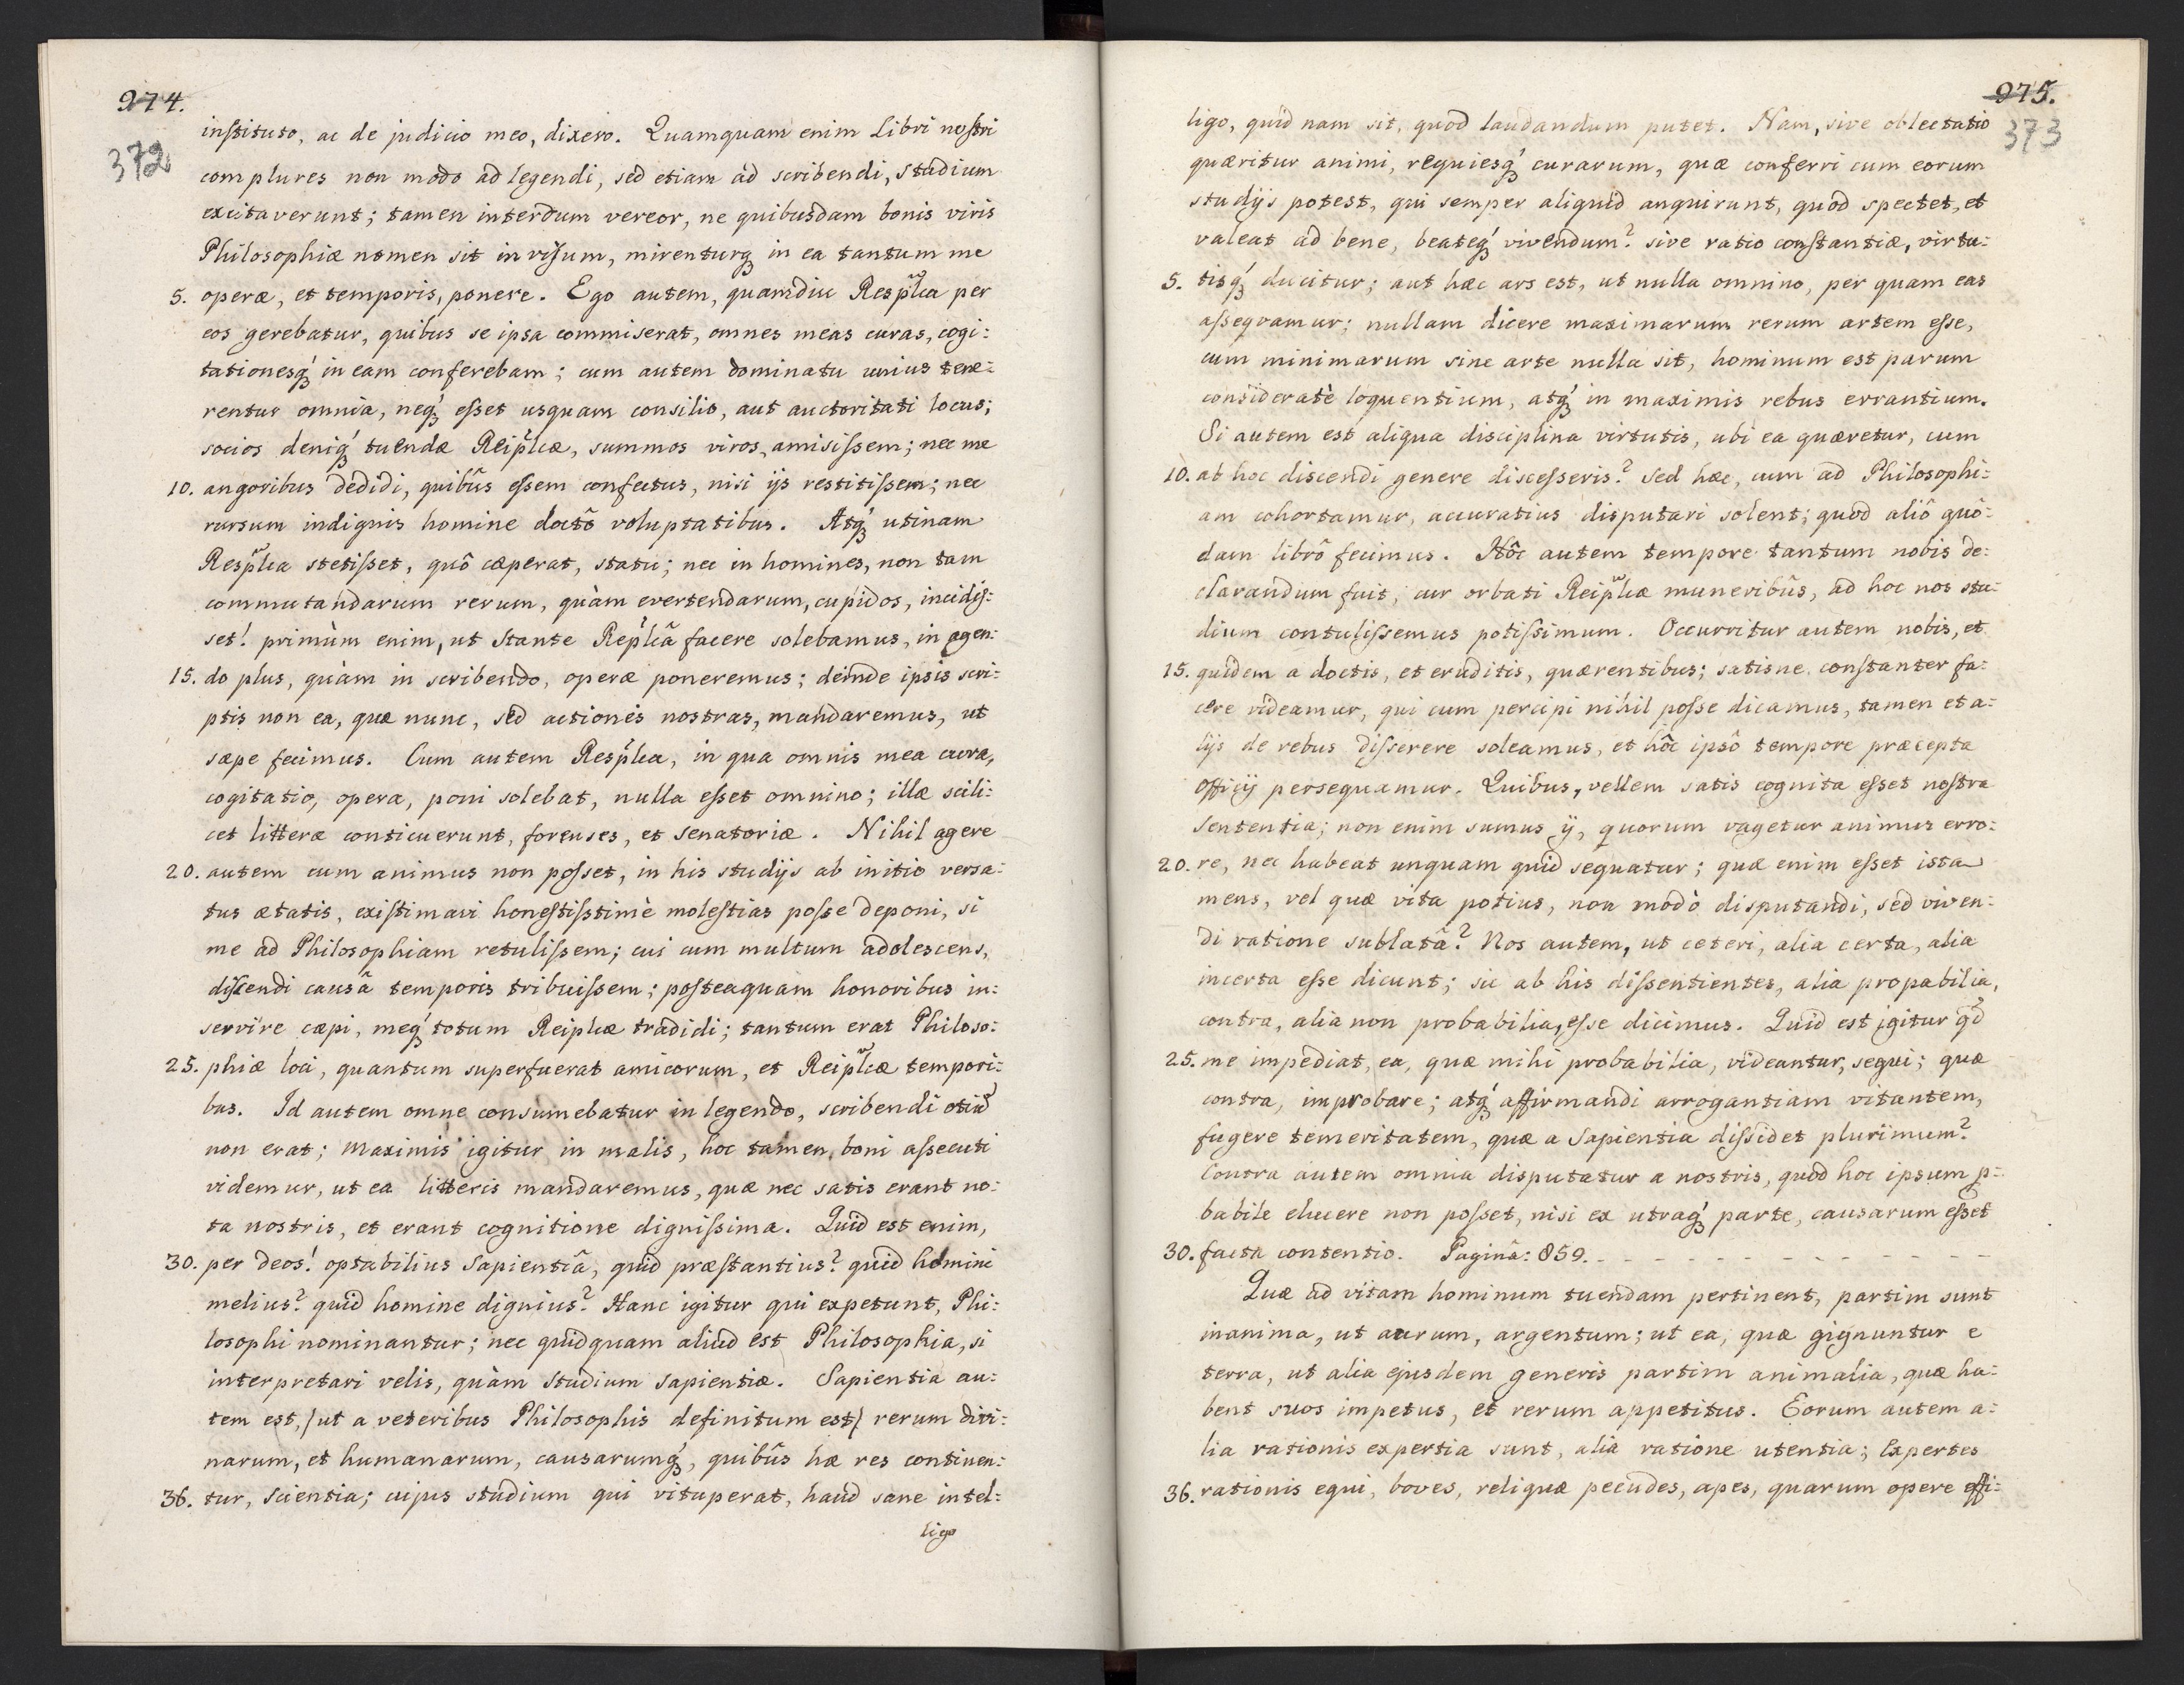 974.
372
instituto, ac de judicio meo, dixero. Quamquam enim Libri nostri
complures non modo ad legendi, sed etiam ad scribendi, studium
excitaverunt; tamen interdum vereor, ne quibusdam bonis viris
Philosophiæ nomen sit invisum, mirenturq́ꝫ in ea tantum me
5. operæ, et temporis, ponere. Ego autem, quamdiu Respl̃ca per
eos gerebatur, quibus se ipsa commiserat, omnes meas curas, cogi:
tationesq́ꝫ in eam conferebam; cum autem dominatu unius tene:
rentur omnia, neq́ꝫ esset usquam consilio, aut auctoritati locus;
socios deniq́ꝫ tuendæ Reipl̃cæ, summos viros, amisissem; nec me
10. angoribus dedidi, quibûs essem confectus, nisi ijs restitissem; nec
rursum indignis homine doctô voluptatibus. Atq́ꝫ utinam
Respl̃ca stetisset, quô cæperat, statu; nec in homines, non tam
commutandarum rerum, quàm evertendarum, cupidos, incidis:
set! primùm enim, ut stante Repl̃câ facere solebamus, in agen:
15. do plus, quàm in scribendo, operæ poneremus; deinde ipsis scri:
ptis non ea, quæ nunc, sed actiones nostras, mandaremus, ut
sæpe fecimus. Cum autem Respl̃ca, in qua omnis mea cura,
cogitatio, opera, poni solebat, nulla esset omnino; illæ scili:
cet litteræ conticuerunt, forenses, et senatoriæ. Nihil agere
20. autem cum animus non posset, in his studijs ab initio versa:
tus ætatis, existimavi honestissimè molestias posse deponi, si
me ad Philosophiam retulissem; cui cum multum adolescens,
discendi causâ temporis tribuissem; posteaquam honoribus in:
servire cæpi, meq́ꝫ totum Reiplcæ tradidi; tantum erat Philoso:
25. phiæ loci, quantum superfuerat amicorum, et Reipl̃cæ tempori:
bus. Id autem omne consumebatur in legendo, scribendi otiũ
non erat; Maximis igitur in malis, hoc tamen boni assecuti
videmur, ut ea litteris mandaremus, quæ nec satis erant no:
ta nostris, et erant cognitione dignissima. Quid est enim,
30. per deos! optabilius Sapientiâ, quid præstantius? quid homini
melius? quid homine dignius? Hanc igitur qui expetunt, Phi:
losophi nominantur; nec quidquam aliud est Philosophia, si
interpretari velis, quàm studium sapientiæ. Sapientia au:
tem est, (ut a veteribus Philosophis definitum est) rerum divi:
narum, et humanarum, causarumq́ꝫ, quibûs hæ res continen:
36. tur, scientia; cujus studium qui vituperat, haud sane intel:
ligo
975.
373
ligo, quid nam sit, quod laudandum putet. Nam, sive oblectatio
quæritur animi, requiesq́ꝫ curarum, quæ conferri cum eorum
studijs potest, qui semper aliquid anquirunt, quod spectet, et
valeat ad bene, beateq́ꝫ vivendum? sive ratio constantiæ, virtu:
5. tisq́ꝫ ducitur; aut hæc ars est, ut nulla omnino, per quam eas
assequamur; nullam dicere maximarum rerum artem esse,
cum minimarum sine arte nulla sit, hominum est parum
consideratè loquentium, atq́ꝫ in maximis rebus errantium.
Si autem est aliqua disciplina virtutis, ubi ea quæretur, cum
10. ab hoc discendi genere discesseris? sed hæc, cum ad Philosophi:
am cohortamur, accuratius disputari solent; quod aliô quô:
dam librô fecimus. Hôc autem tempore tantum nobis de:
clarandum fuit, cur orbati Reipl̃cæ muneribûs, ad hoc nos stu:
dium contulissemus potissimum. Occurritur autem nobis, et
15. quidem a doctis, et eruditis, quærentibus; satisne constanter fa:
cere videamur, qui cum percipi nihil posse dicamus, tamen et a:
lijs de rebus disserere soleamus, et hôc ipsô tempore præcepta
officij persequamur. Quibus, vellem satis cognita esset nostra
sententia; non enim sumus ij, quorum vagetur animus erro:
20. re, nec habeat unquam quid sequatur; quæ enim esset ista
mens, vel quæ vita potius, non modò disputandi, sed viven:
di ratione sublatâ? Nos autem, ut ceteri, alia certa, alia
incerta esse dicunt; sic ab his dissentientes, alia propabilia,
contra, alia non probabilia, esse dicimus. Quid est igitur qd̃
25. me impediat, ea, quæ mihi probabilia, videantur, sequi; quæ
contra, improbare; atq́ꝫ affirmandi arrogantiam vitantem,
fugere temeritatem, quæ a Sapientia dissidet plurimum?
Contra autem omnia disputatur a nostris, quòd hoc ipsum p:
babile elucere non posset, nisi ex utraq́ꝫ parte, causarum esset
30. facta contentio. Paginâ: 859. - - - - - - - - - - -
Quæ ad vitam hominum tuendam pertinent, partim sunt
inanima, ut aurum, argentum; ut ea, quæ gignuntur e
terra, ut alia ejusdem generis partim animalia, quæ ha:
bent suos impetus, et rerum appetitus. Eorum autem a:
lia rationis expertia sunt, alia ratione utentia; Expertes
36. rationis equi, boves, reliquæ pecudes, apes, quarum opere effi: